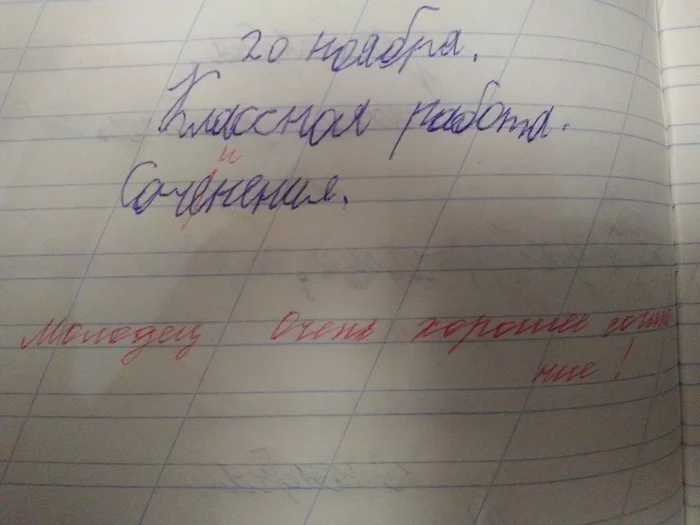 20 ноября.
Классная работа.
и
Соченения.
Молодец Очень хорошее сочине
ние!